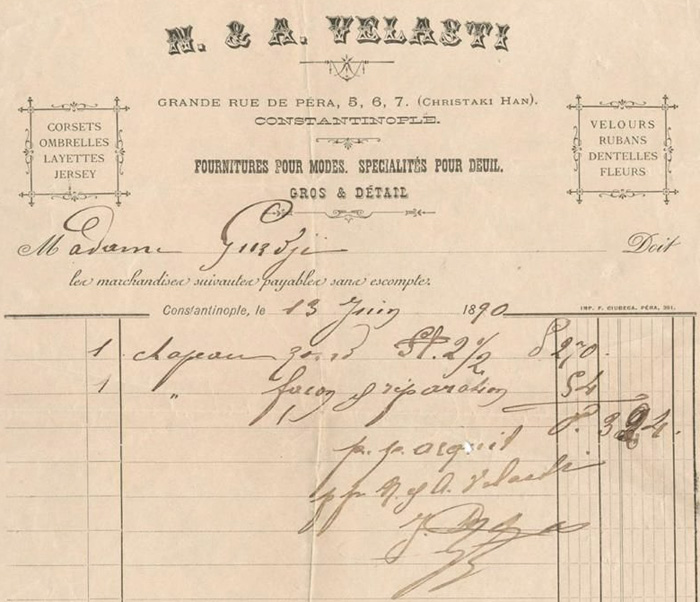 N. & A. VELASTI
GRANDE RUE DE PÉRA, 5, 6, 7. (CHRISTAKI HAN).
CONSTANTINOPLE.
CORSETS
OMBRELLES
LAYETTES
JERSEY
VELOURS
RUBANS
DENTELLES
FLEURS
FOURNITURES POUR MODES. SPECIALITÉS POUR DEUIL.
GROS & DÉTAIL
Madame Doit
les marchandises suivantes payables sans escompte.
Constantinople, le 13 Juin 1890
IMP. F.
1 chapeau 2½ 270.
1 " façon & réparation 54
324.
p. p. acquit
pp N. & A. Velasti